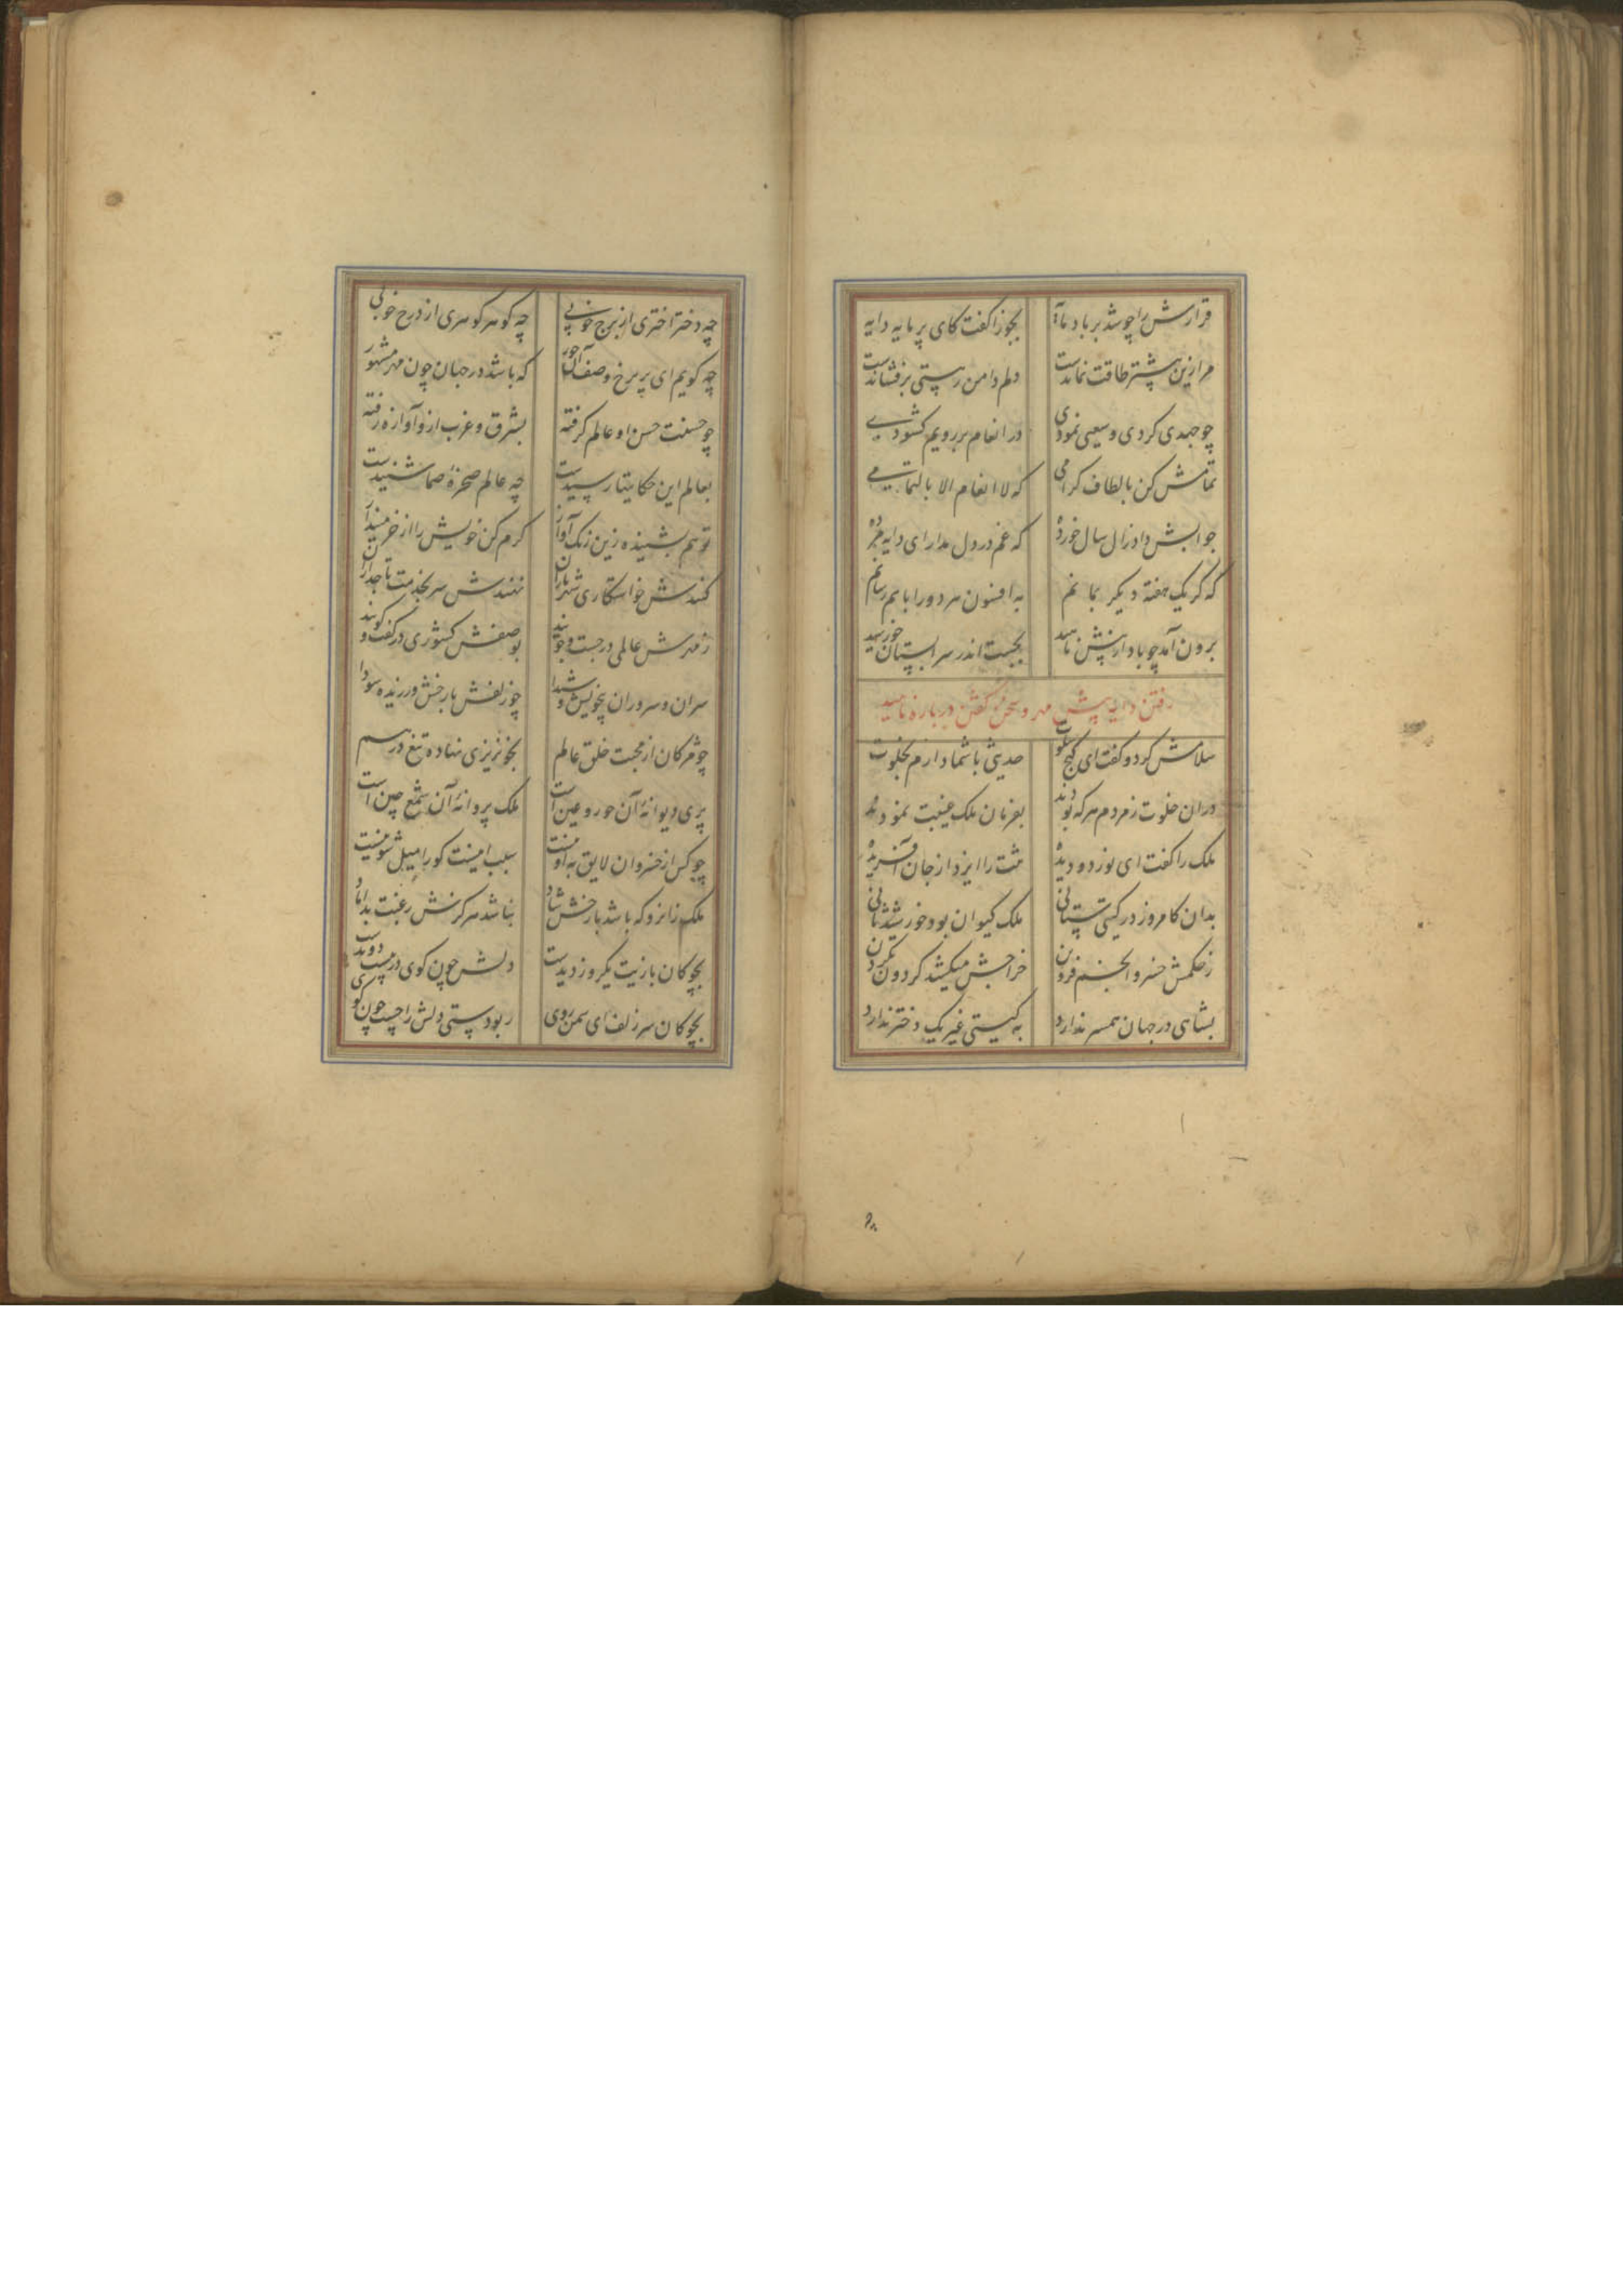 قرارش را چو شد بر باد مایه بجوزا گفت کای پر مایه دایه
مرا زین بیشتر طاقت نماندست دلم دامن ز هستی برفشاندست
چو جهدی کردی و سعیی نمودی در انعام بر رویم کشودی
تمامش کن بالطاف کرامی که لا انعام الا بالتمامی
جوابش داد زال سال خورده که غم در دل مدار ای دایه مرده
که کر یک هفته دیکر بمانم به افسون هر دو را با هم رسانم
برون آمد چو باد از پیش ناهید بجست اندر سرابستان خورشید
رفتن دایه پیش مهر و سخن گفتن درباره ناهید
سلامش کرد و گفت ای کنج سلوت حدیثی با شما دارم بخلوت
دران خلوت ز مردم هر که بودند بفرمان ملک غیبت نمودند
ملک را گفت ای نور دو دیده تنت را ایزد از جان آفریده
بدان کامروز در کیتی ستانی ملک کیوان بود خورشید ثانی
ز حکمش خسرو انجم فزون خراجش میکشد کردون بکردن
بشاهی در جهان همسر ندارد به کیتی غیر یک دختر ندارد
چه دختر اختری از برج خوبی چه کوهر کوهری از درج خوبی
چه کویم ای پریرخ وصف آن حور که باشد در جهان چون مهر مشهور
چو حسنت حسن او عالم کرفته بشرق و غرب ازو آوازه رفته
بعالم این حکایتها رسیدست چه عالم صخرهٔ صما شنیدست
تو هم بشنیده زین زنک آواز کرم کن خویش را از خر مینداز
کنندش خواستکاری شهریاران نهندش سر بخدمت تاجداران
ز مهرش عالمی در جست و جویند بوصفش کشوری در گفت و کویند
سران و سروران بیخویش و شیدا چو زلفش با رخش ورزیده سودا
چو مژکان از محبت خلق عالم بخونریزی نهاده تیغ در هم
پری دیوانهٔ آن حور و عین است ملک پروانهٔ آن شمع چین است
چو کس از خسروان لایق به او نیست سبب اینست کو را میل شو نیست
ملک زانرو که باشد با رخش شاد نباشد هرکزش رغبت بداماد
بچوکان بازیت یکروز دیدست دلش چون کوی در پیت دویدست
بچوکان سر زلف ای سمن روی ربودستی دلش را چست چون کوی